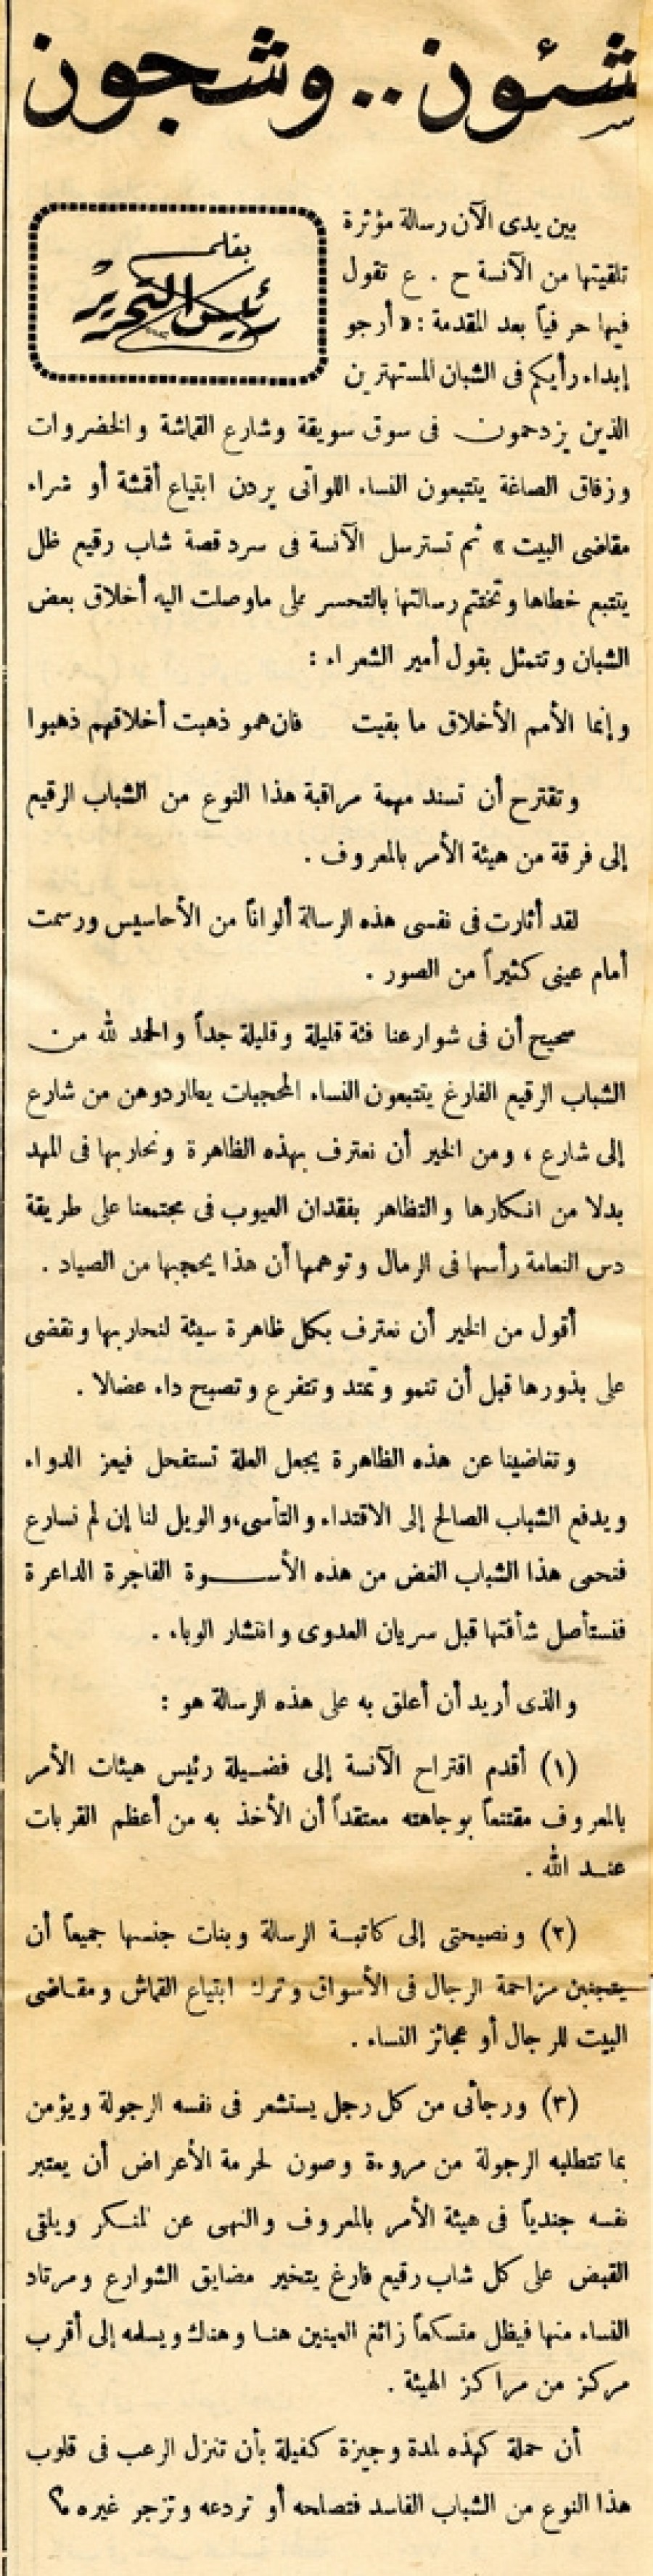 شئون.. وشجون
بقلم
رئيس التحرير
بين يدى الآن رسالة مؤثرة
تلقيتها من الآنسة ح . ع تقول
فيها حرفياً بعد المقدمة : « أرجو
إبداء رأيكم فى الشبان المستهترين
الذين يزدحمون فى سوق سويقة وشارع القماشة والخضروات
وزقاق الصاغة يتتبعون النساء اللواتى يردن ابتياع أقمشة أو شراء
مقاضى البيت » ثم تسترسل الآنسة فى سرد قصة شاب رقيع ظل
يتتبع خطاها وتختتم رسالتها بالتحسر على ماوصلت اليه أخلاق بعض
الشبان وتتمثل بقول أمير الشعراء :
وإنما الأمم الأخلاق ما بقيت فان همو ذهبت أخلاقهم ذهبوا
وتقترح أن تسند مهمة مراقبة هذا النوع من الشباب الرقيع
إلى فرقة من هيئة الأمر بالمعروف .
لقد أثارت فى نفسى هذه الرسالة ألواناً من الأحاسيس ورسمت
أمام عينى كثيراً من الصور .
صحيح أن فى شوارعنا فئة قليلة وقليلة جداً والحمد لله من
الشباب الرقيع الفارغ يتتبعون النساء المحجبات يطاردوهن من شارع
إلى شارع ، ومن الخير أن نعترف بهذه الظاهرة ونحاربها فى المهد
بدلا من انكارها والتظاهر بفقدان العيوب فى مجتمعنا على طريقة
دس النعامة رأسها فى الرمال وتوهمها أن هذا يحجبها من الصياد .
أقول من الخير أن نعترف بكل ظاهرة سيئة لنحاربها ونقضى
على بذورها قبل أن تنمو وتمتد وتتفرع وتصبح داء عضالا .
وتغاضينا عن هذه الظاهرة يجعل العلة تستفحل فيعز الدواء
ويدفع الشباب الصالح إلى الاقتداء والتأسى ، والويل لنا إن لم نسارع
فنحمى هذا الشباب الغض من هذه الأسوة الفاجرة الداعرة
فنستأصل شأفتها قبل سريان العدوى وانتشار الوباء .
والذى أريد أن أعلق به على هذه الرسالة هو :
(١) أقدم اقتراح الآنسة إلى فضيلة رئيس هيئات الأمر
بالمعروف مقتنعاً بوجاهته معتقداً أن الأخذ به من أعظم القربات
عند الله .
(٢) ونصيحتى إلى كاتبة الرسالة وبنات جنسها جميعاً أن
يتجنبن مزاحمة الرجال فى الأسواق وترك ابتياع القماش ومقاضى
البيت للرجال أو عجائز النساء .
(٣) ورجائى من كل رجل يستشعر فى نفسه الرجولة ويؤمن
بما تتطلبه الرجولة من مروءة وصون لحرمة الأعراض أن يعتبر
نفسه جندياً فى هيئة الأمر بالمعروف والنهى عن المنكر ويلقى
القبض على كل شاب رقيع فارغ يتخير مضايق الشوارع ومرتاد
النساء منها فيظل متسكعاً زائغ العينين هنا وهناك ويسلمه إلى أقرب
مركز من مراكز الهيئة .
أن حملة كهذه لمدة وجيزة كفيلة بأن تنزل الرعب فى قلوب
هذا النوع من الشباب الفاسد فتصلحه أو تردعه وتزجر غيره م؟